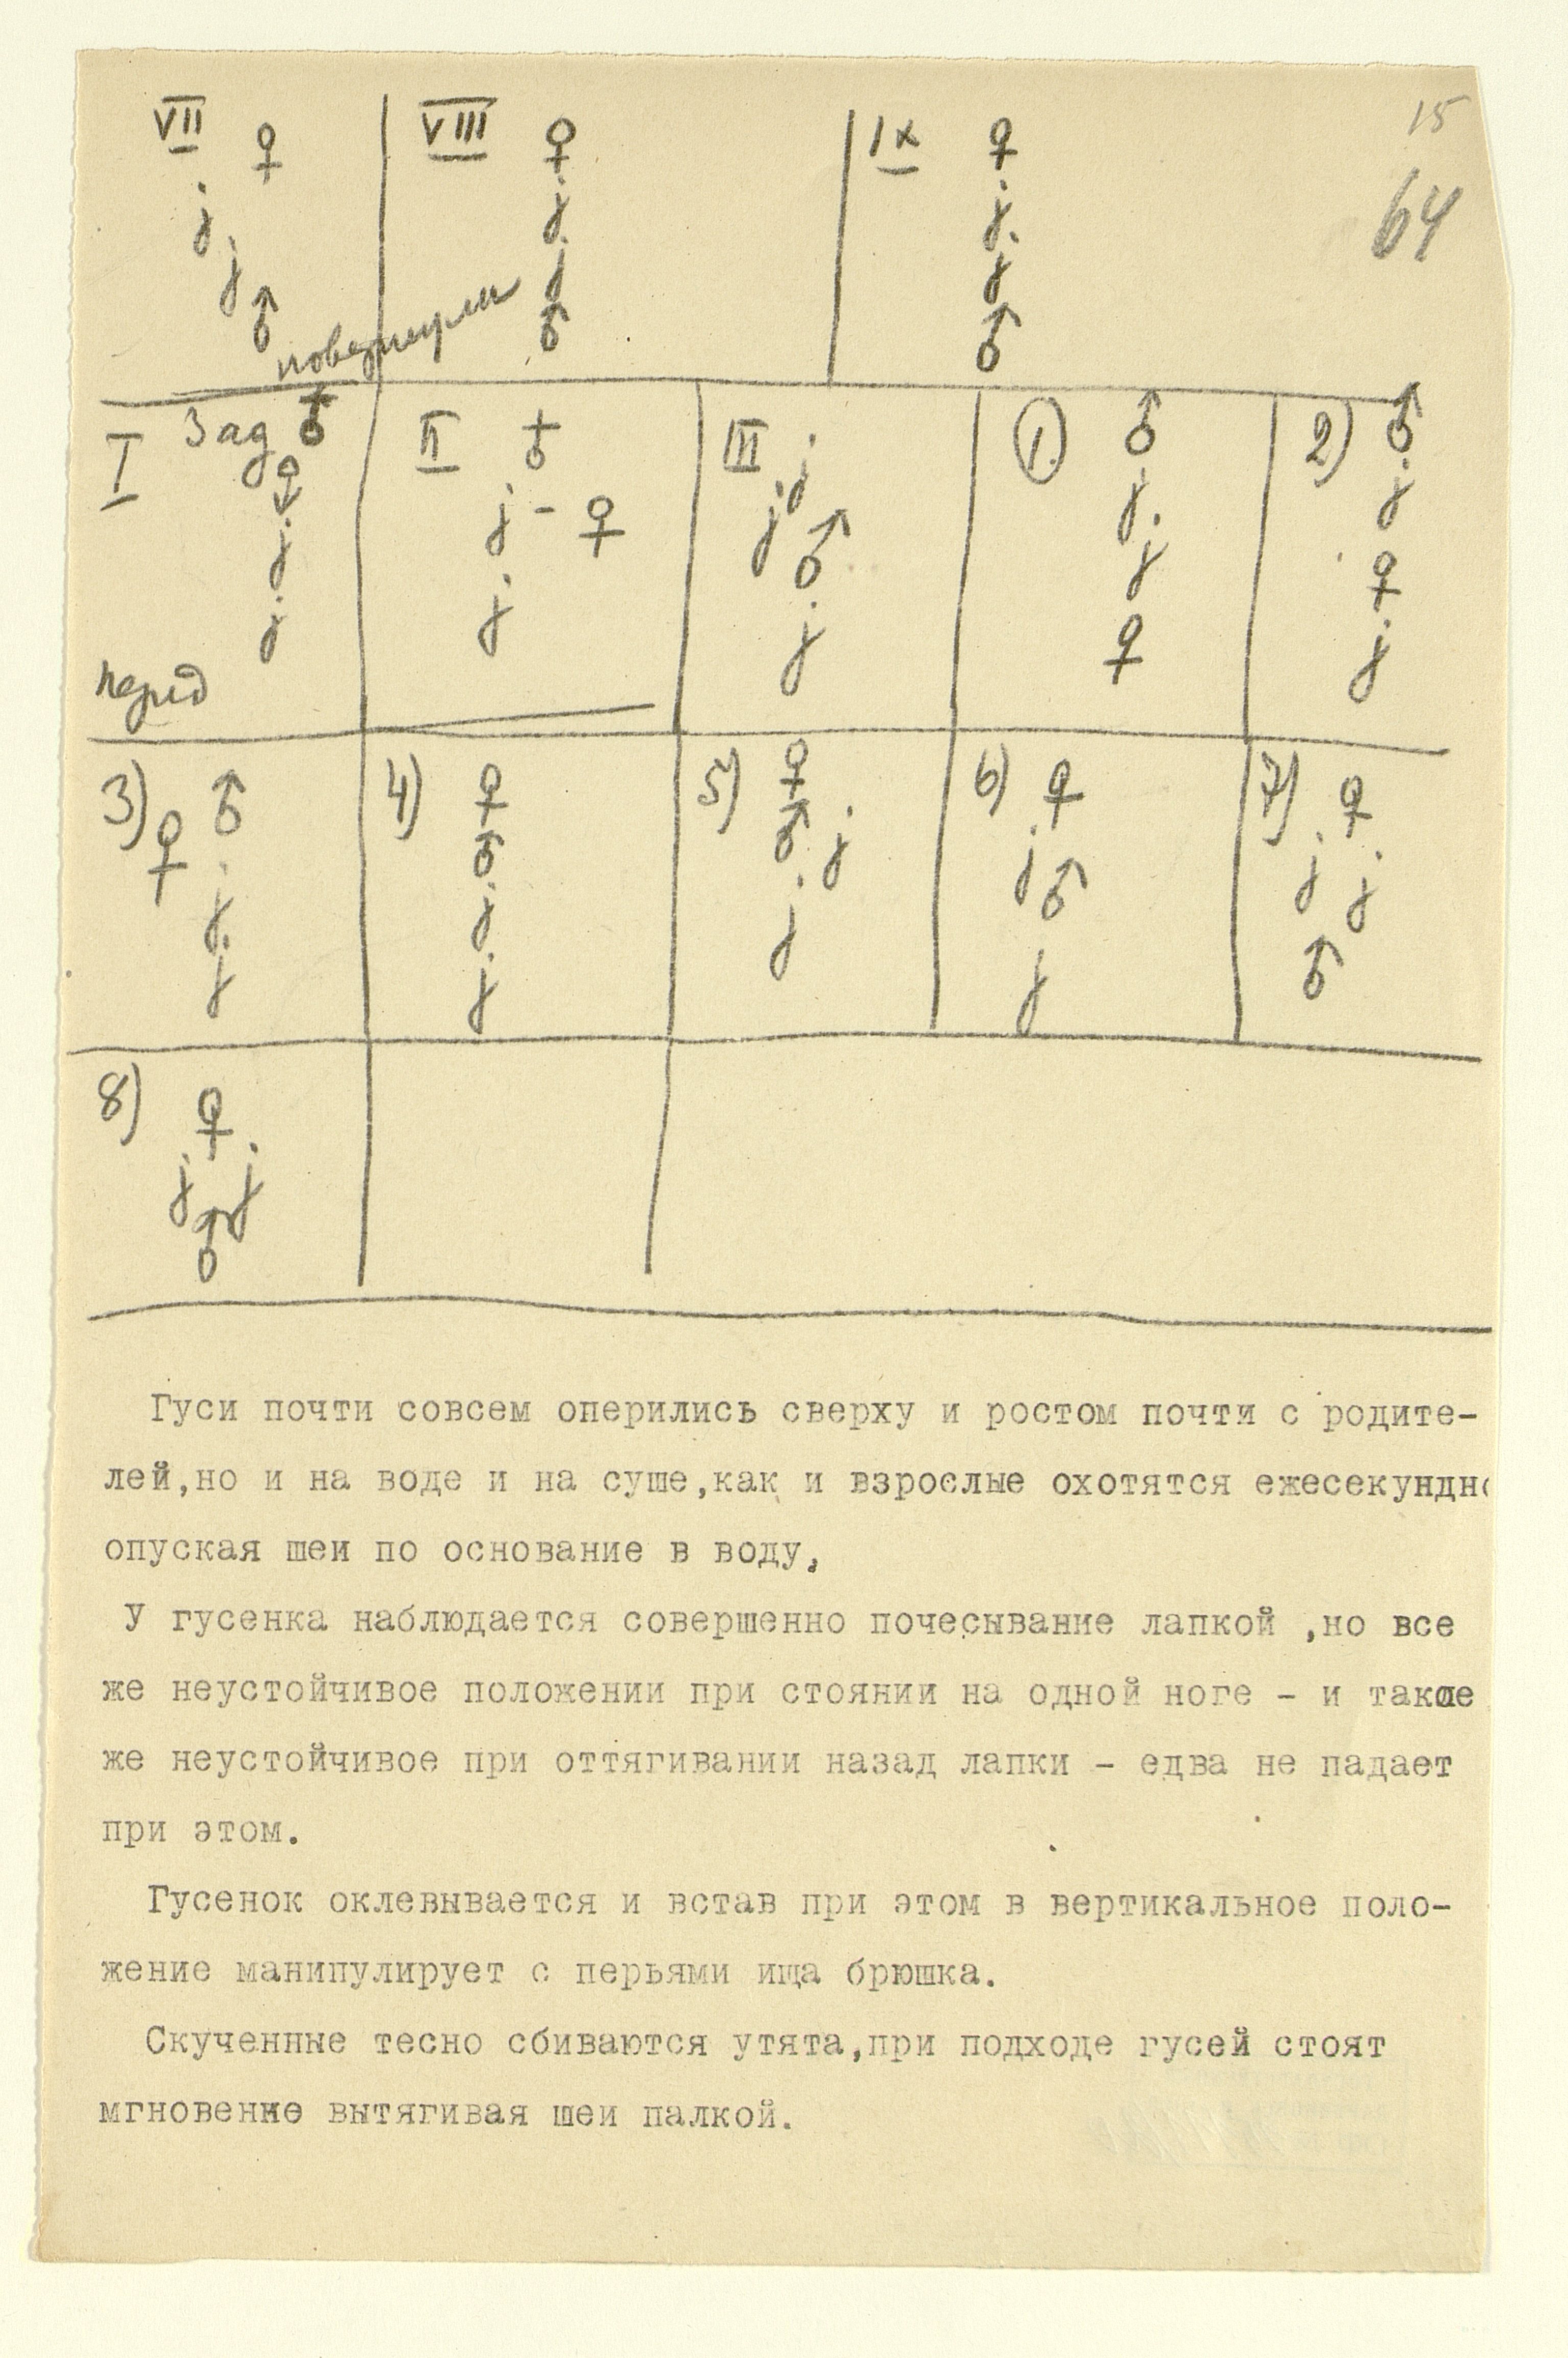 15
64
VII ♀
j
j
♂
VIII ♀
j
j
♂
IX ♀
j
j
♂
повернули
I Зад ♂
♀
j
j
перед
II ♂
j - ♀
j
III j
j
♂
j
1. ♂
j
j
♀
2) ♂
j
♀
j
3) ♂
♀
j
j
4) ♀
♂
j
j
5) ♀
♂ j
j
6) ♀
j ♂
j
7) ♀
j j
♂
8) ♀
j j
♂
Гуси почти совсем оперились сверху и ростом почти с родите-
лей,но и на воде и на суше,как и взрослые охотятся ежесекундно
опуская шеи по основание в воду,
У гусенка наблюдается совершенно почесывание лапкой ,но все
же неустойчивое положении при стоянии на одной ноге - и такое
же неустойчивое при оттягивании назад лапки - едва не падает
при этом.
Гусенок оклевывается и встав при этом в вертикальное поло-
жение манипулирует с перьями ища брюшка.
Скученные тесно сбиваются утята,при подходе гусей стоят
мгновение вытягивая шеи палкой.